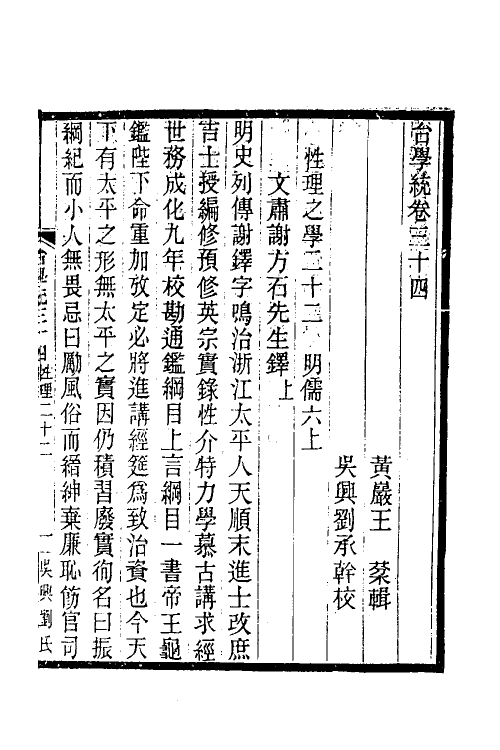 台學統卷三十四
黃巖王　棻輯
吳興劉承幹校
性理之學二十二　明儒六上
文肅謝方石先生鐸上
明史列傳謝鐸字鳴治浙江太平人天順末進士改庶
吉士授編修預修英宗實錄性介特力學慕古講求經
世務成化九年校勘通鑑綱目上言綱目一書帝王龜
鑑陛下命重加攷定必將進講經筵爲致治資也今天
下有太平之形無太平之實因仍積習廢實徇名曰振
綱紀而小人無畏忌曰勵風俗而縉紳棄廉恥飭官司
台學統三十四 性理二十二　一　吳興劉氏